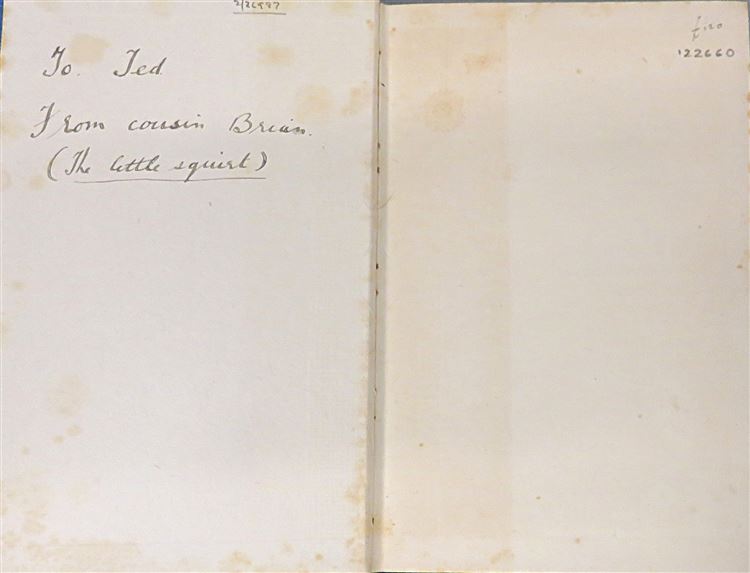 To. Ted
From cousin Brian.
(The little squirt)
122660